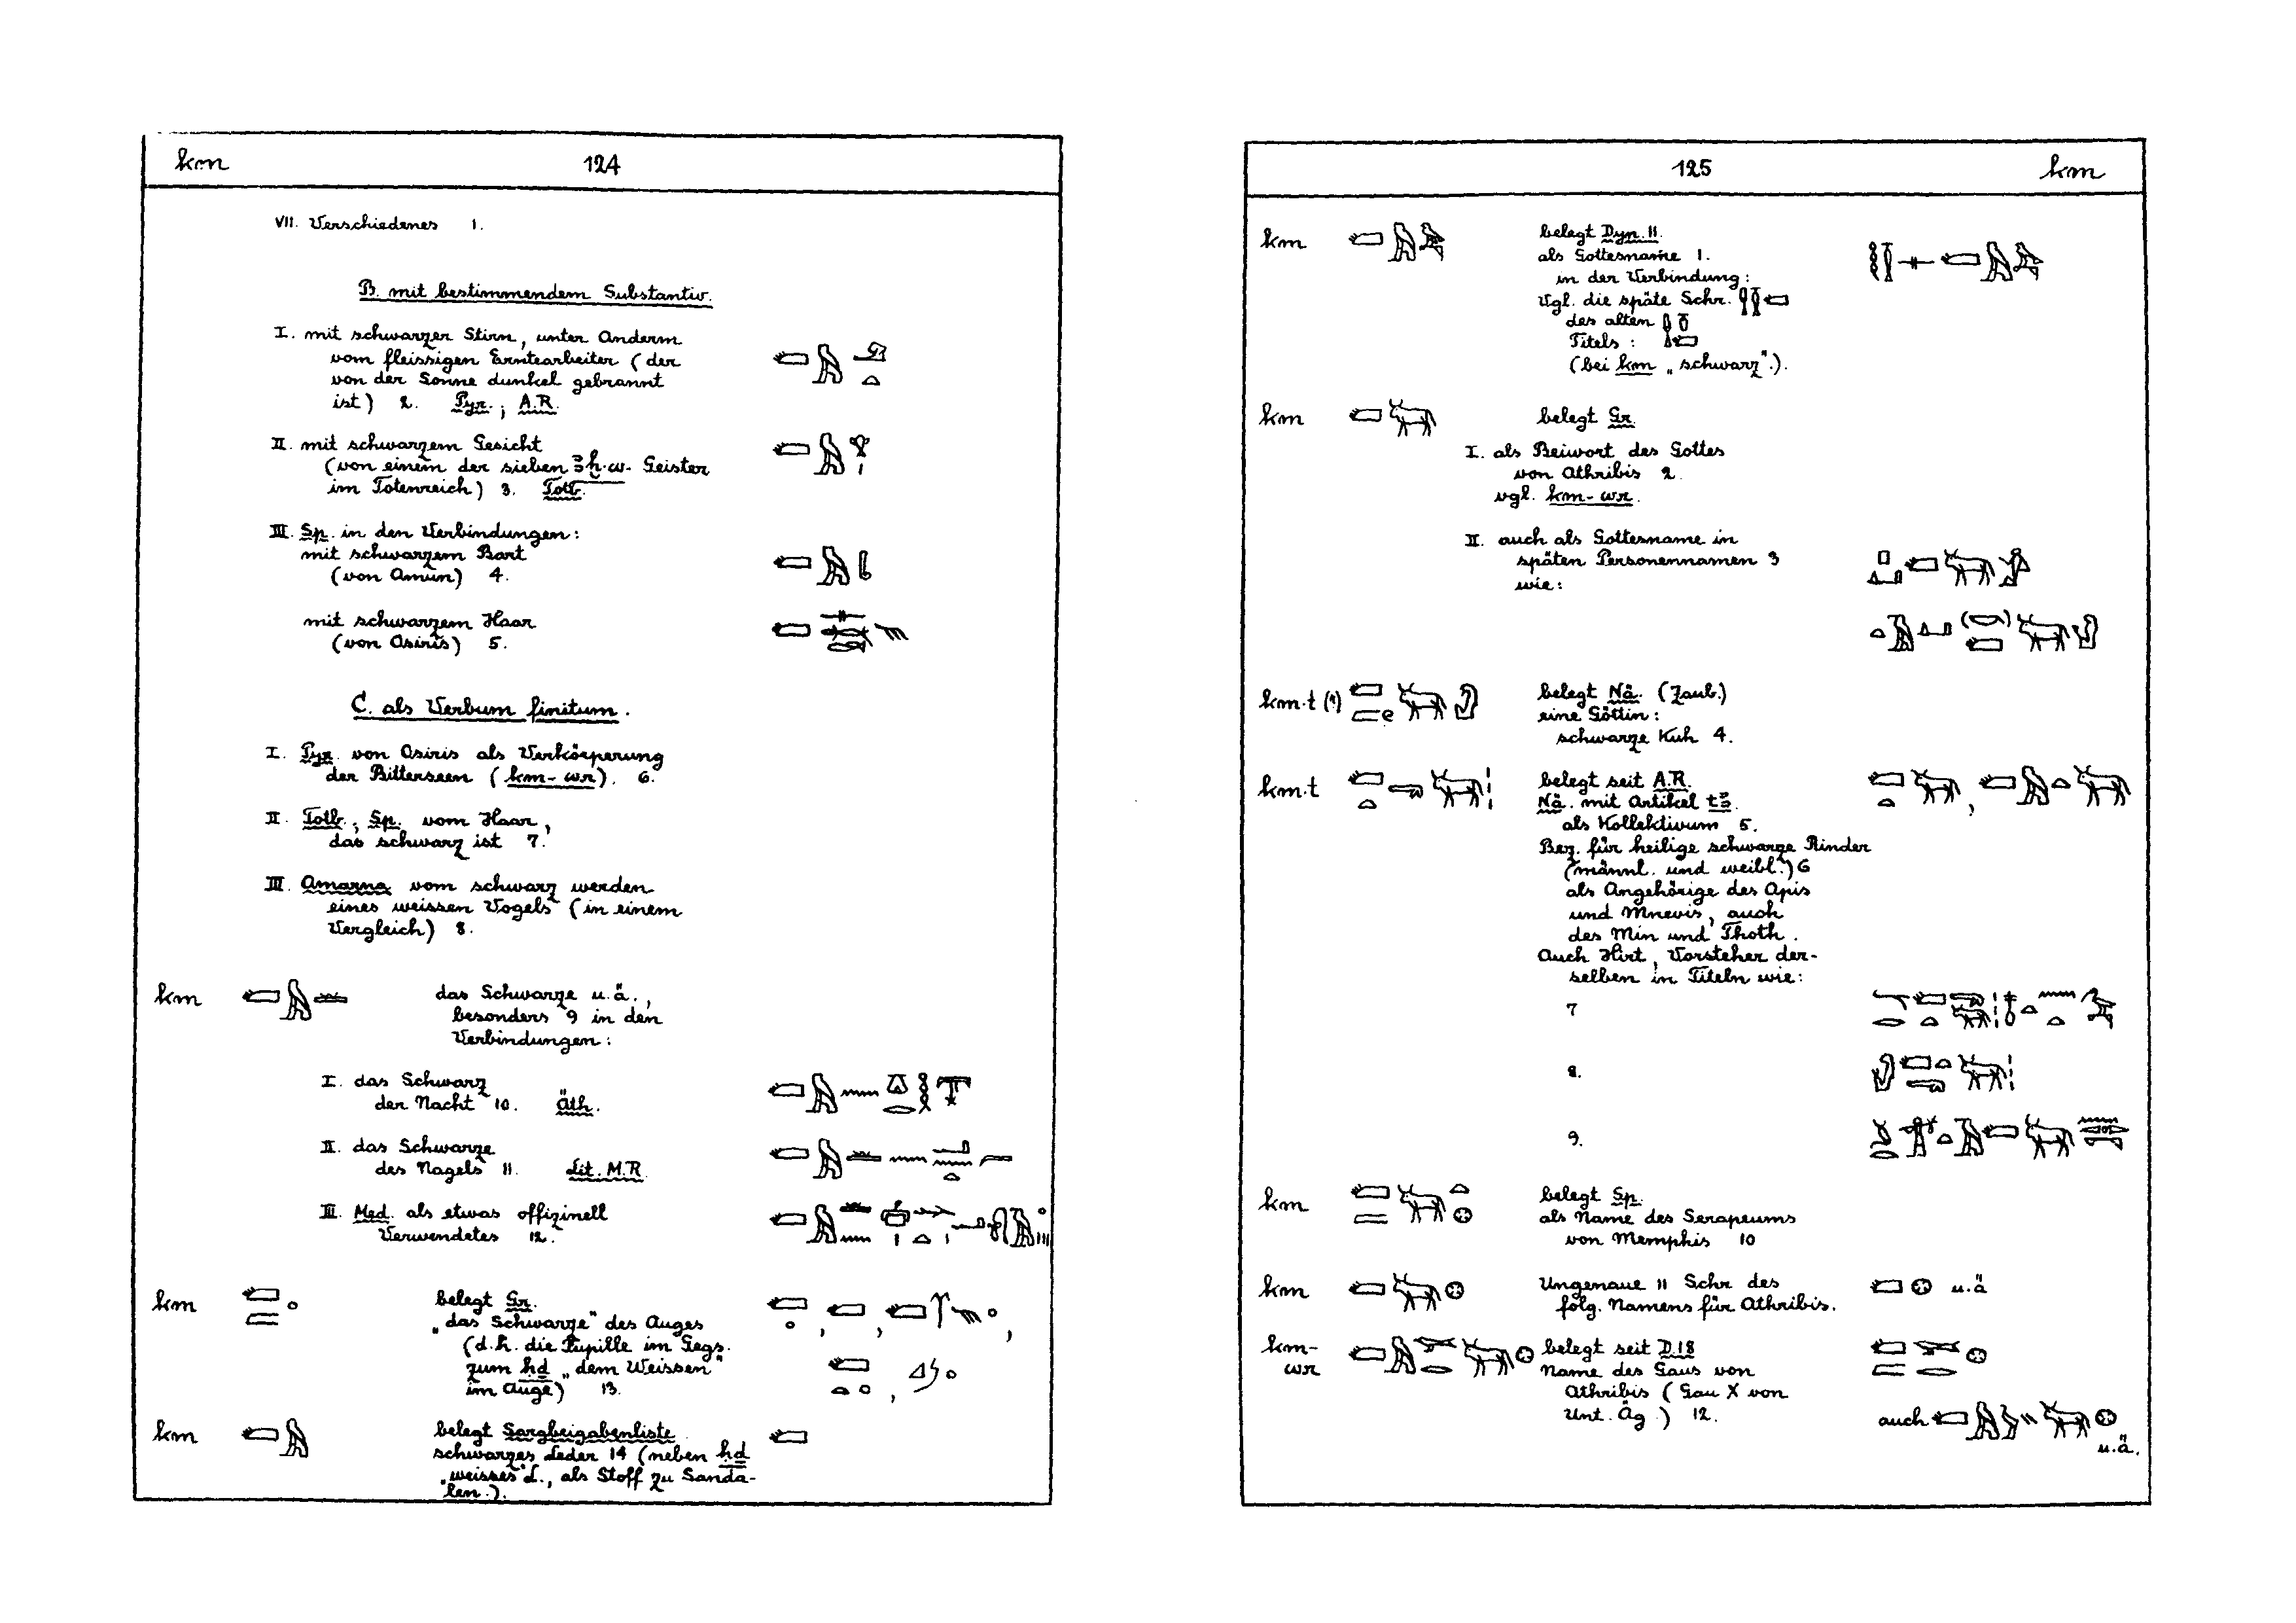 km 124
VII. Verschiedenes 1.
B. mit bestimmendem Substantiv.
I. mit schwarzer Stirn, unter Anderm
vom fleissigen Erntearbeiter (der
von der Sonne dunkel gebrannt
ist) 2. Pyr.; A.R.
II. mit schwarzem Gesicht
(von einem der sieben ꜣḫ.w- Geister
im Totenreich) 3. Totb.
III. Sp. in den Verbindungen:
mit schwarzem Bart
(von Amun) 4.
mit schwarzem Haar
(von Osiris) 5.
C. als Verbum finitum.
I. Pyr. von Osiris als Verkörperung
der Bitterseen (km-wr). 6.
II. Totb.; Sp. vom Haar,
das schwarz ist 7.
III. Amarna vom schwarz werden
eines weissen Vogels (in einem
Vergleich) 8.
km das Schwarze u.ä.,
besonders 9 in den
Verbindungen:
I. das Schwarz
der Nacht 10. Äth.
II. das Schwarze
des Nagels 11. Lit. M.R.
III. Med. als etwas offizinell
Verwendetes 12.
km belegt Gr.
„das Schwarze" des Auges
(d.h. die Pupille im Gegs.
zum ḥḏ „dem Weissen"
im Auge) 13.
km belegt Sargbeigabenliste
schwarzes Leder 14 (neben ḥḏ
„weisses" L., als Stoff zu Sanda-
len.).
125 km
km belegt Dyn. II.
als Gottesname 1.
in der Verbindung:
Vgl. die späte Schr.
des alten
Titels:
(bei km „schwarz".).
km belegt Gr.
I. als Beiwort des Gottes
von Athribis 2.
vgl. km-wr.
II. auch als Gottesname in
späten Personennamen 3
wie:
km.t (?) belegt Nä. (Zaub.)
eine Göttin:
schwarze Kuh 4.
km.t belegt seit A.R.
Nä. mit Artikel tꜣ.
als Kollektivum 5.
Bez. für heilige schwarze Rinder
(männl. und weibl.) 6
als Angehörige des Apis
und Mnevis, auch
des Min und Thoth.
Auch Hirt, Vorsteher der-
selben in Titeln wie:
7
8.
9.
km belegt Sp.
als Name des Serapeums
von Memphis 10
km Ungenaue 11 Schr. des u.ä
folg. Namens für Athribis.
km- belegt seit D.18
wr Name des Gaus von
Athribis (Gau X von
Unt. Äg.) 12. auch
u.ä.